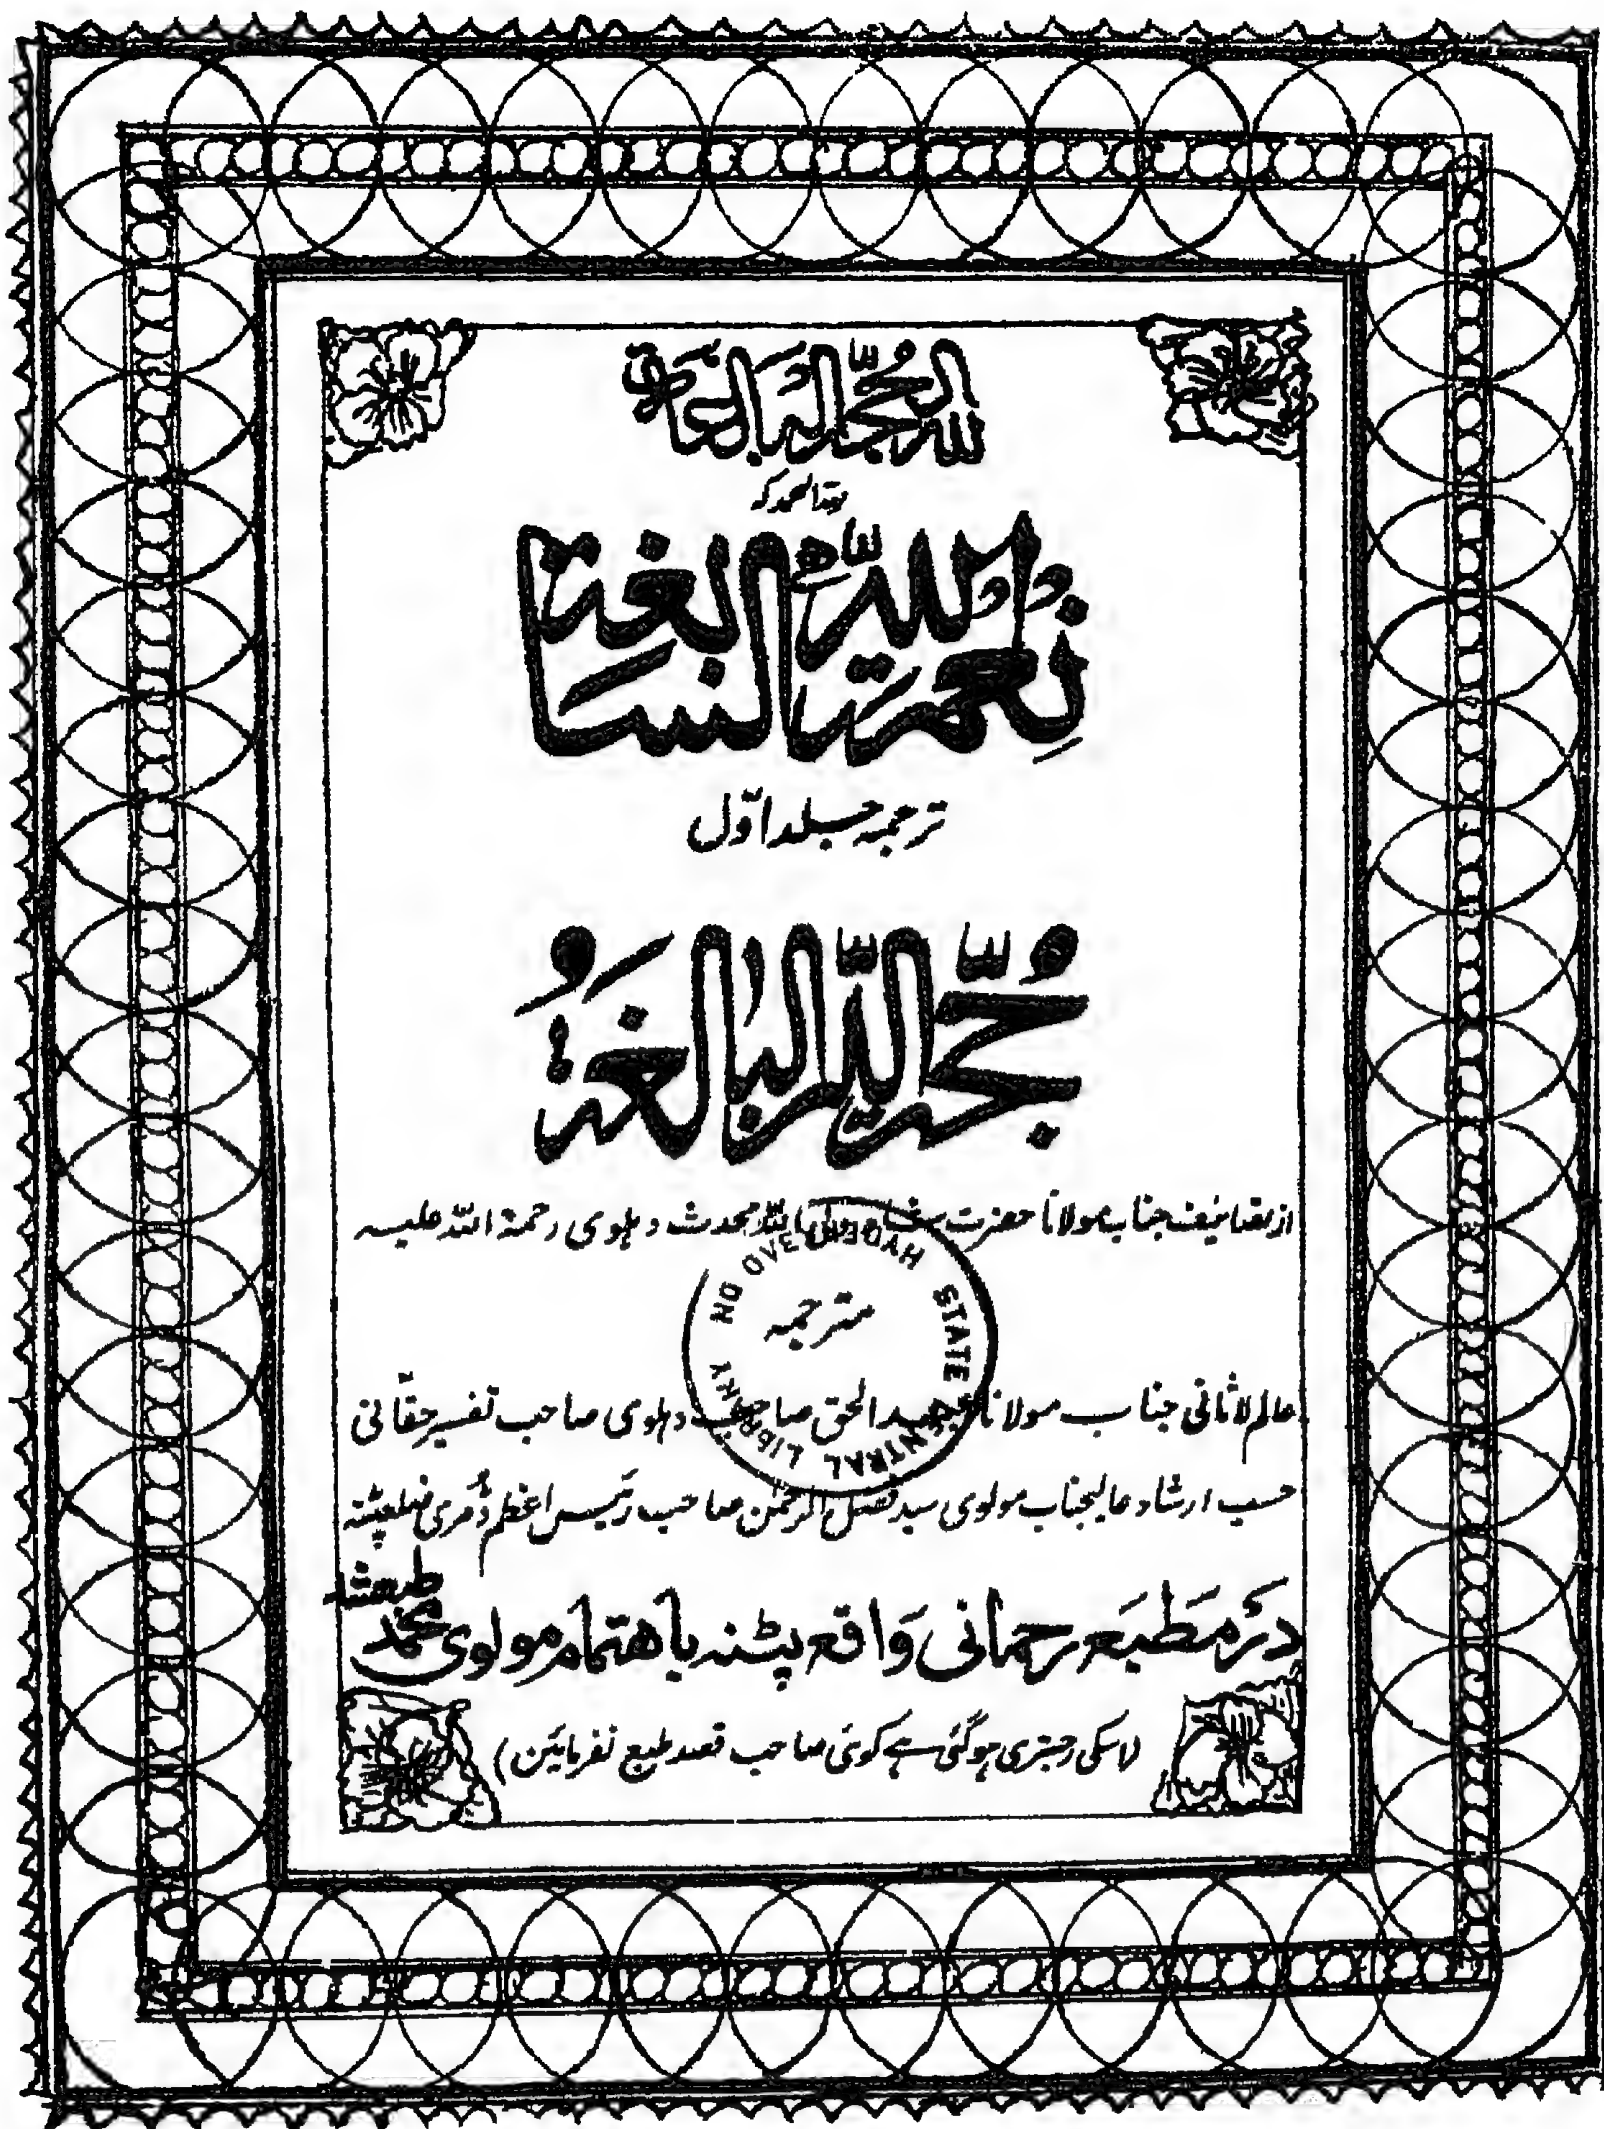 للہ الحجۃ البالغۃ
للہ الحمد کہ
نعمۃ اللہ السابغۃ
ترجمہ جلد اوّل
حُجَّۃُ اللہِ البَالِغَۃُ
از تصانیف جناب مولانا حضرت شاہ ولی اللہ محدث دہلوی رحمۃ اللہ علیہ
مترجمہ
عالم لاثانی جناب مولانا عبدالحق صاحب دہلوی صاحب تفسیر حقّانی
حسب ارشاد عالیجناب مولوی سید فضل الرحمٰن صاحب رئیس اعظم ڈمری ضلع پٹنہ
در مطبعہ رحمانی واقع پٹنہ باہتمام مولوی محمد
طبع شد
(اسکی رجسٹری ہوگئی ہے کوئی صاحب قصد طبع نفرمائیں)
HYDERABAD
STATE CENTRAL LIBRARY